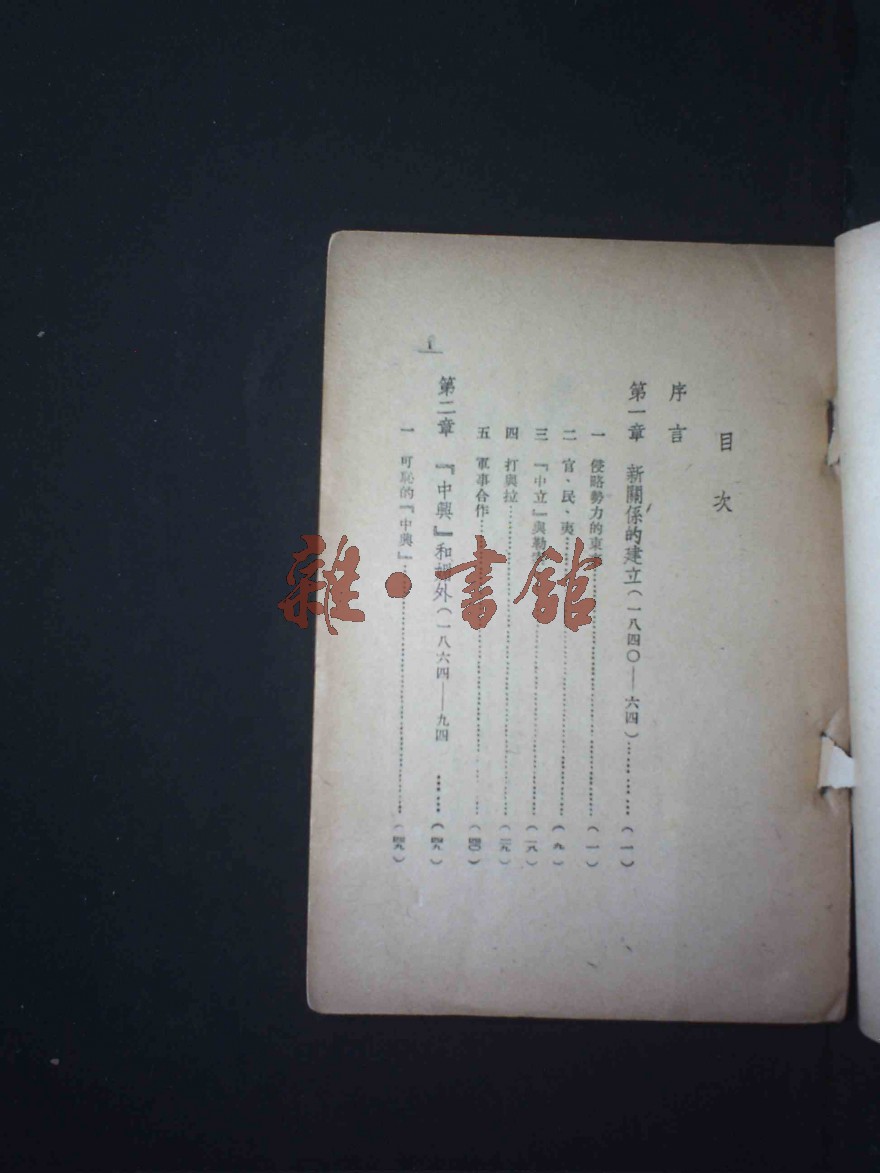 目次
序言
第一章 新關係的建立(一八四〇——六四)………………(一)
一 侵略勢力的東………………(一)
二 官、民、夷………………(九)
三 『中立』與勒………………(一八)
四 打與拉………………(二九)
五 軍事合作………………(四〇)
第二章 『中興』和媚外(一八六四——九四 ………………(四九)
一 可恥的『中興』………………(四九)
1
雜·書館